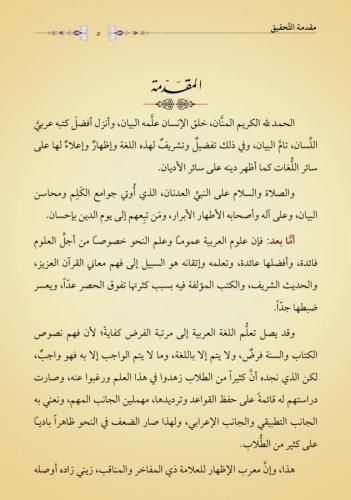 مقدمة التَّحقيق
٥
المقَدّمة
الحمد لله الكريم المنَّان، خلق الإنسان علَّمه البيان، وأنزل أفضلَ كتبه عربيَّ
اللِّسان، تامَّ البيان، وفي ذلك تفضيلٌ وتشريفٌ لهذه اللغة وإظهارٌ وإعلاءٌ لها على
سائر اللُّغات كما أظهر دينه على سائر الأديان.
والصلاة والسلام على النبيِّ العدنان، الذي أُوتي جوامع الكَلِم ومحاسن
البيان، وعلى آله وأصحابه الأطهار الأبرار، ومَن تبِعهم إلى يوم الدين بإحسان.
أمَّا بعد: فإن علوم العربية عمومًا وعلم النحو خصوصًا من أجلِّ العلوم
فائدة، وأفضلها عائدة، وتعلمه وإتقانه هو السبيل إلى فهم معاني القرآن العزيز،
والحديث الشريف، والكتب المؤلفة فيه بسبب كثرتها تفوق الحصر عدًّا، ويعسر
ضبطها جدًّا.
وقد يصل تعلُّم اللغة العربية إلى مرتبة الفرض كفايةً؛ لأن فهم نصوص
الكتاب والسنة فرضٌ، ولا يتم إلا باللغة، وما لا يتم الواجب إلا به فهو واجبٌ،
لكن الذي نجده أنَّ كثيراً من الطلاب زهدوا في هذا العلم ورغبوا عنه، وصارت
دراستهم له قائمةً على حفظ القواعد وترديدها، مهملين الجانب المهم، ونعني به
الجانب التطبيقي والجانب الإعرابي، ولهذا صار الضعف في النحو ظاهراً باديًا
على كثير من الطُّلاب.
هذا، وإنَّ معرب الإظهار للعلامة ذي المفاخر والمناقب، زيني زاده أوصله